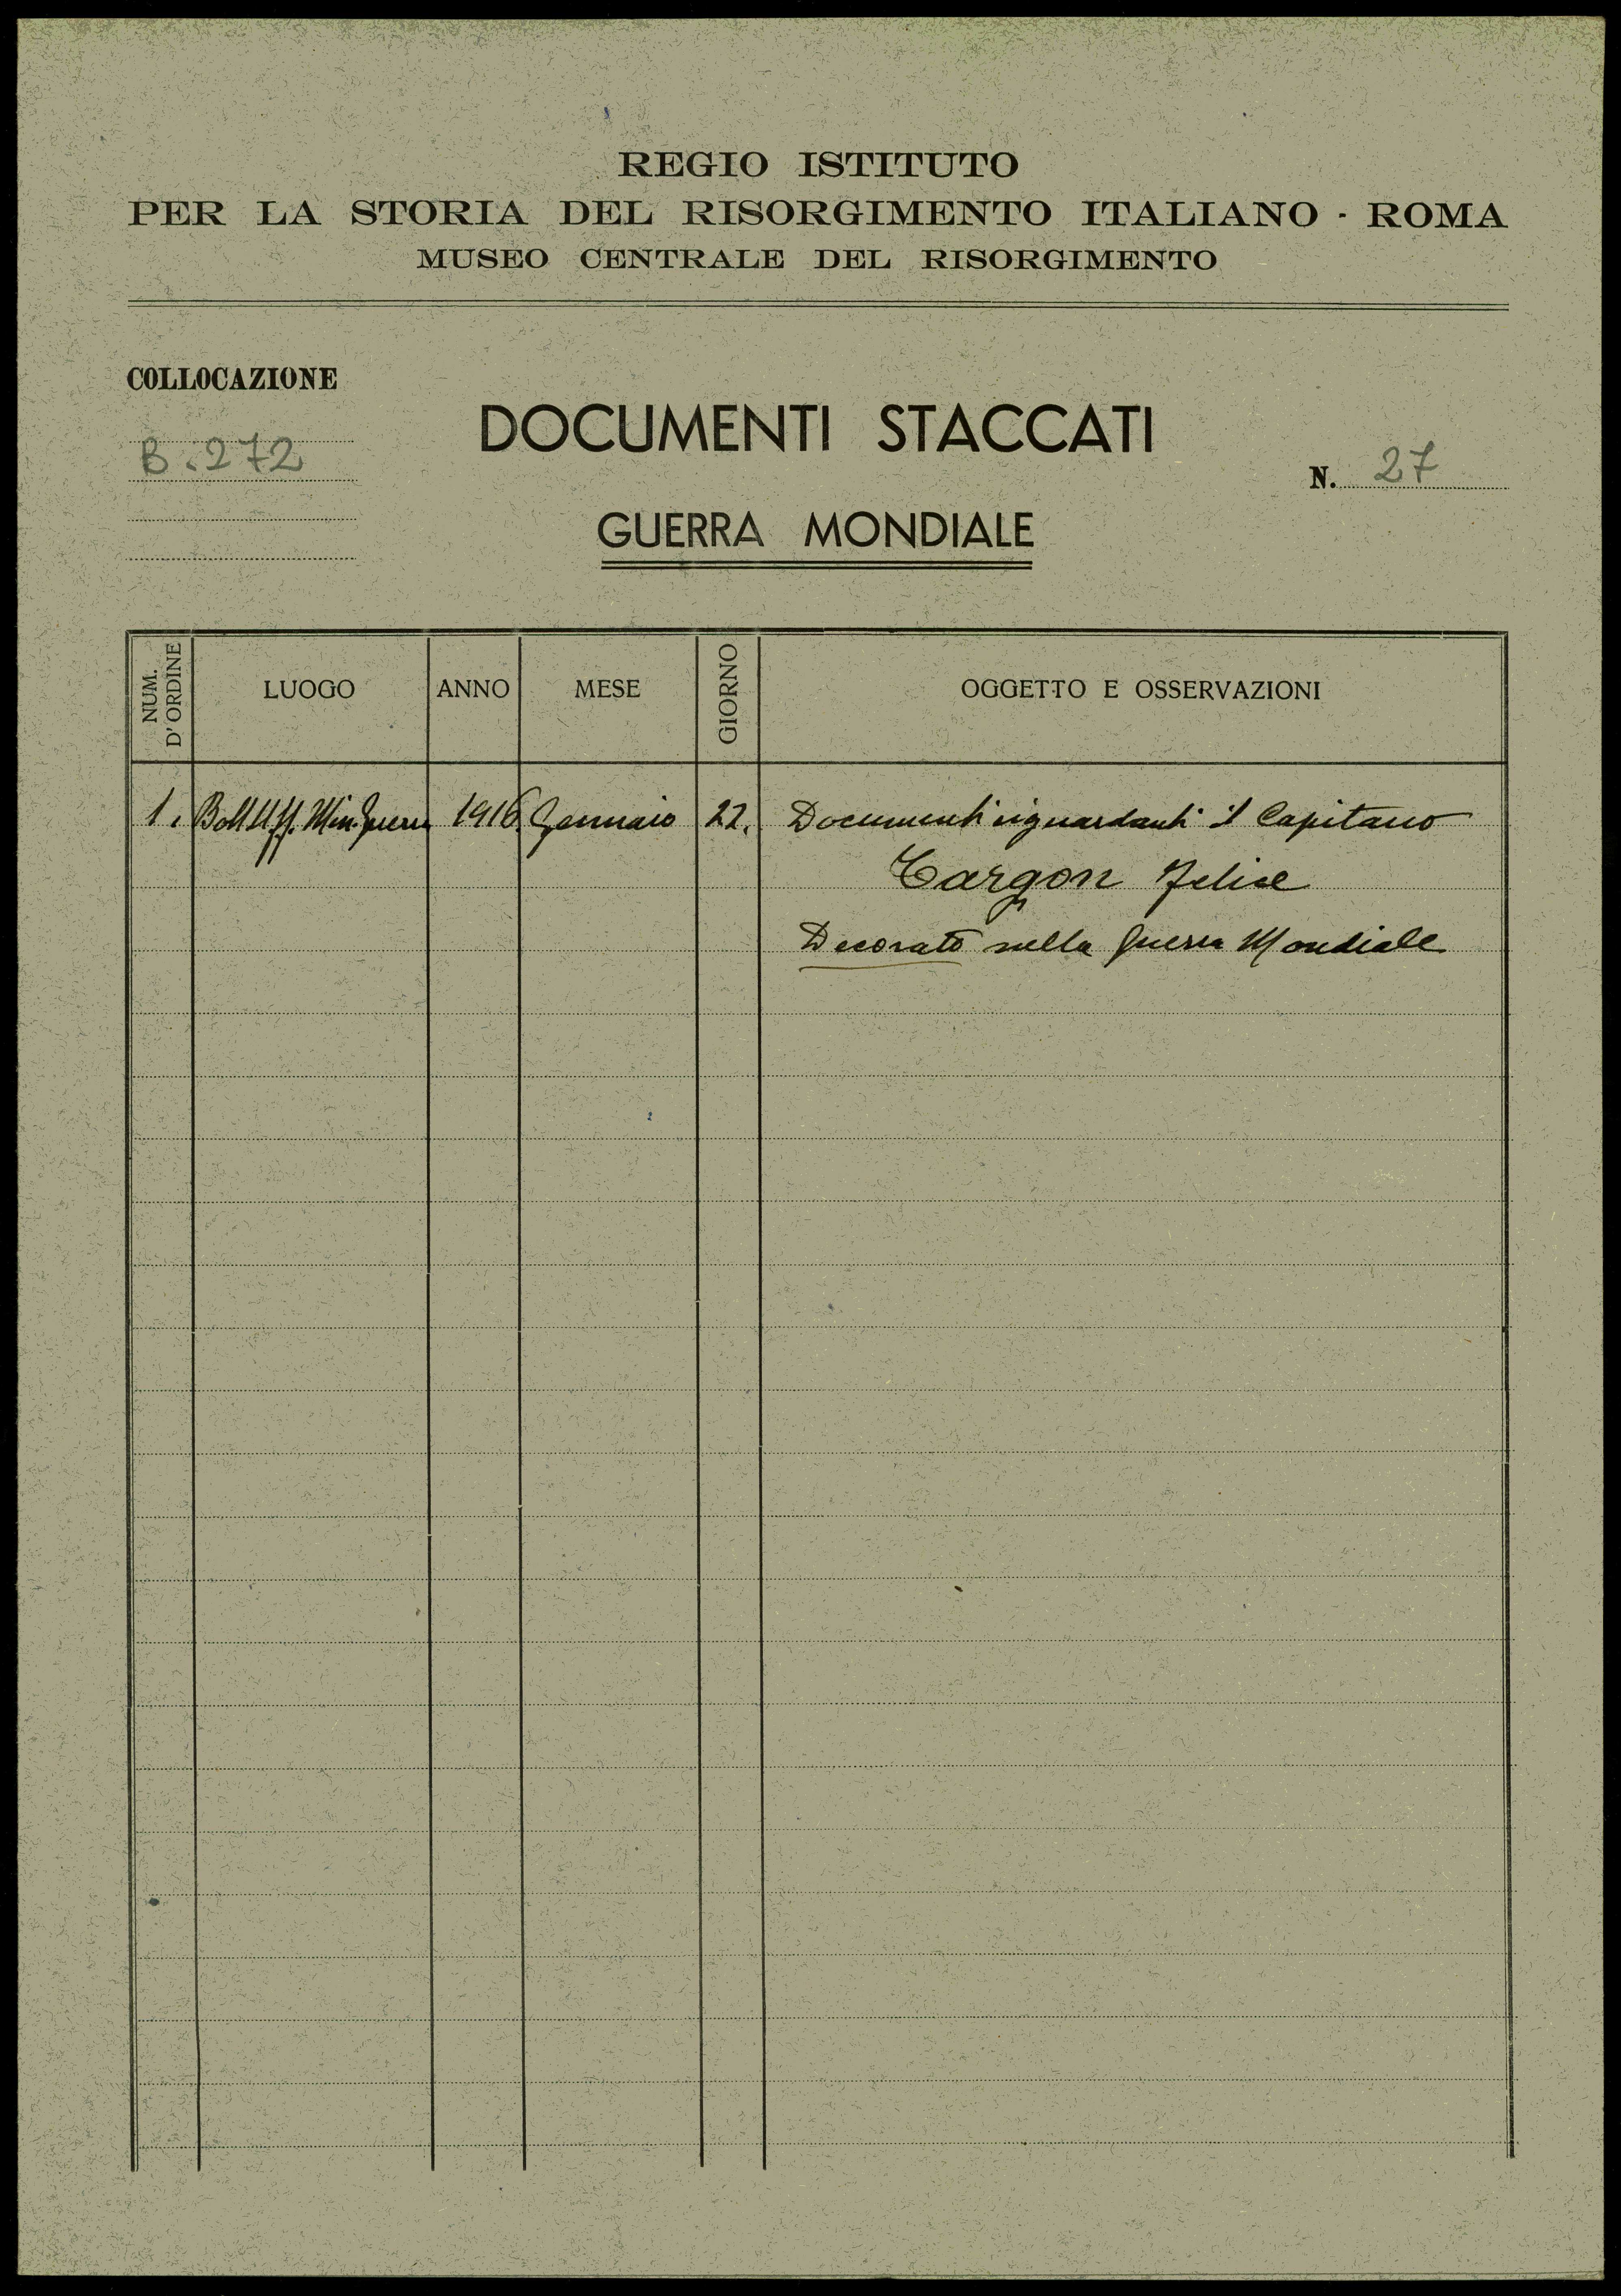 REGIO ISTITUTO
PER LA STORIA DEL RISORGIMENTO ITALIANO - ROMA
MUSEO CENTRALE DEL RISORGIMENTO
COLLOCAZIONE
B. 272
DOCUMENTI STACCATI
N. 27
GUERRA MONDIALE
NUM. D'ORDINE LUOGO ANNO MESE GIORNO OGGETTO E OSSERVAZIONI
1. Boll Uff. Min. Guerra 1916 Gennaio 22. Documenti riguardanti il Capitano
Cargon Felice
Decorato nella Guerra Mondiale